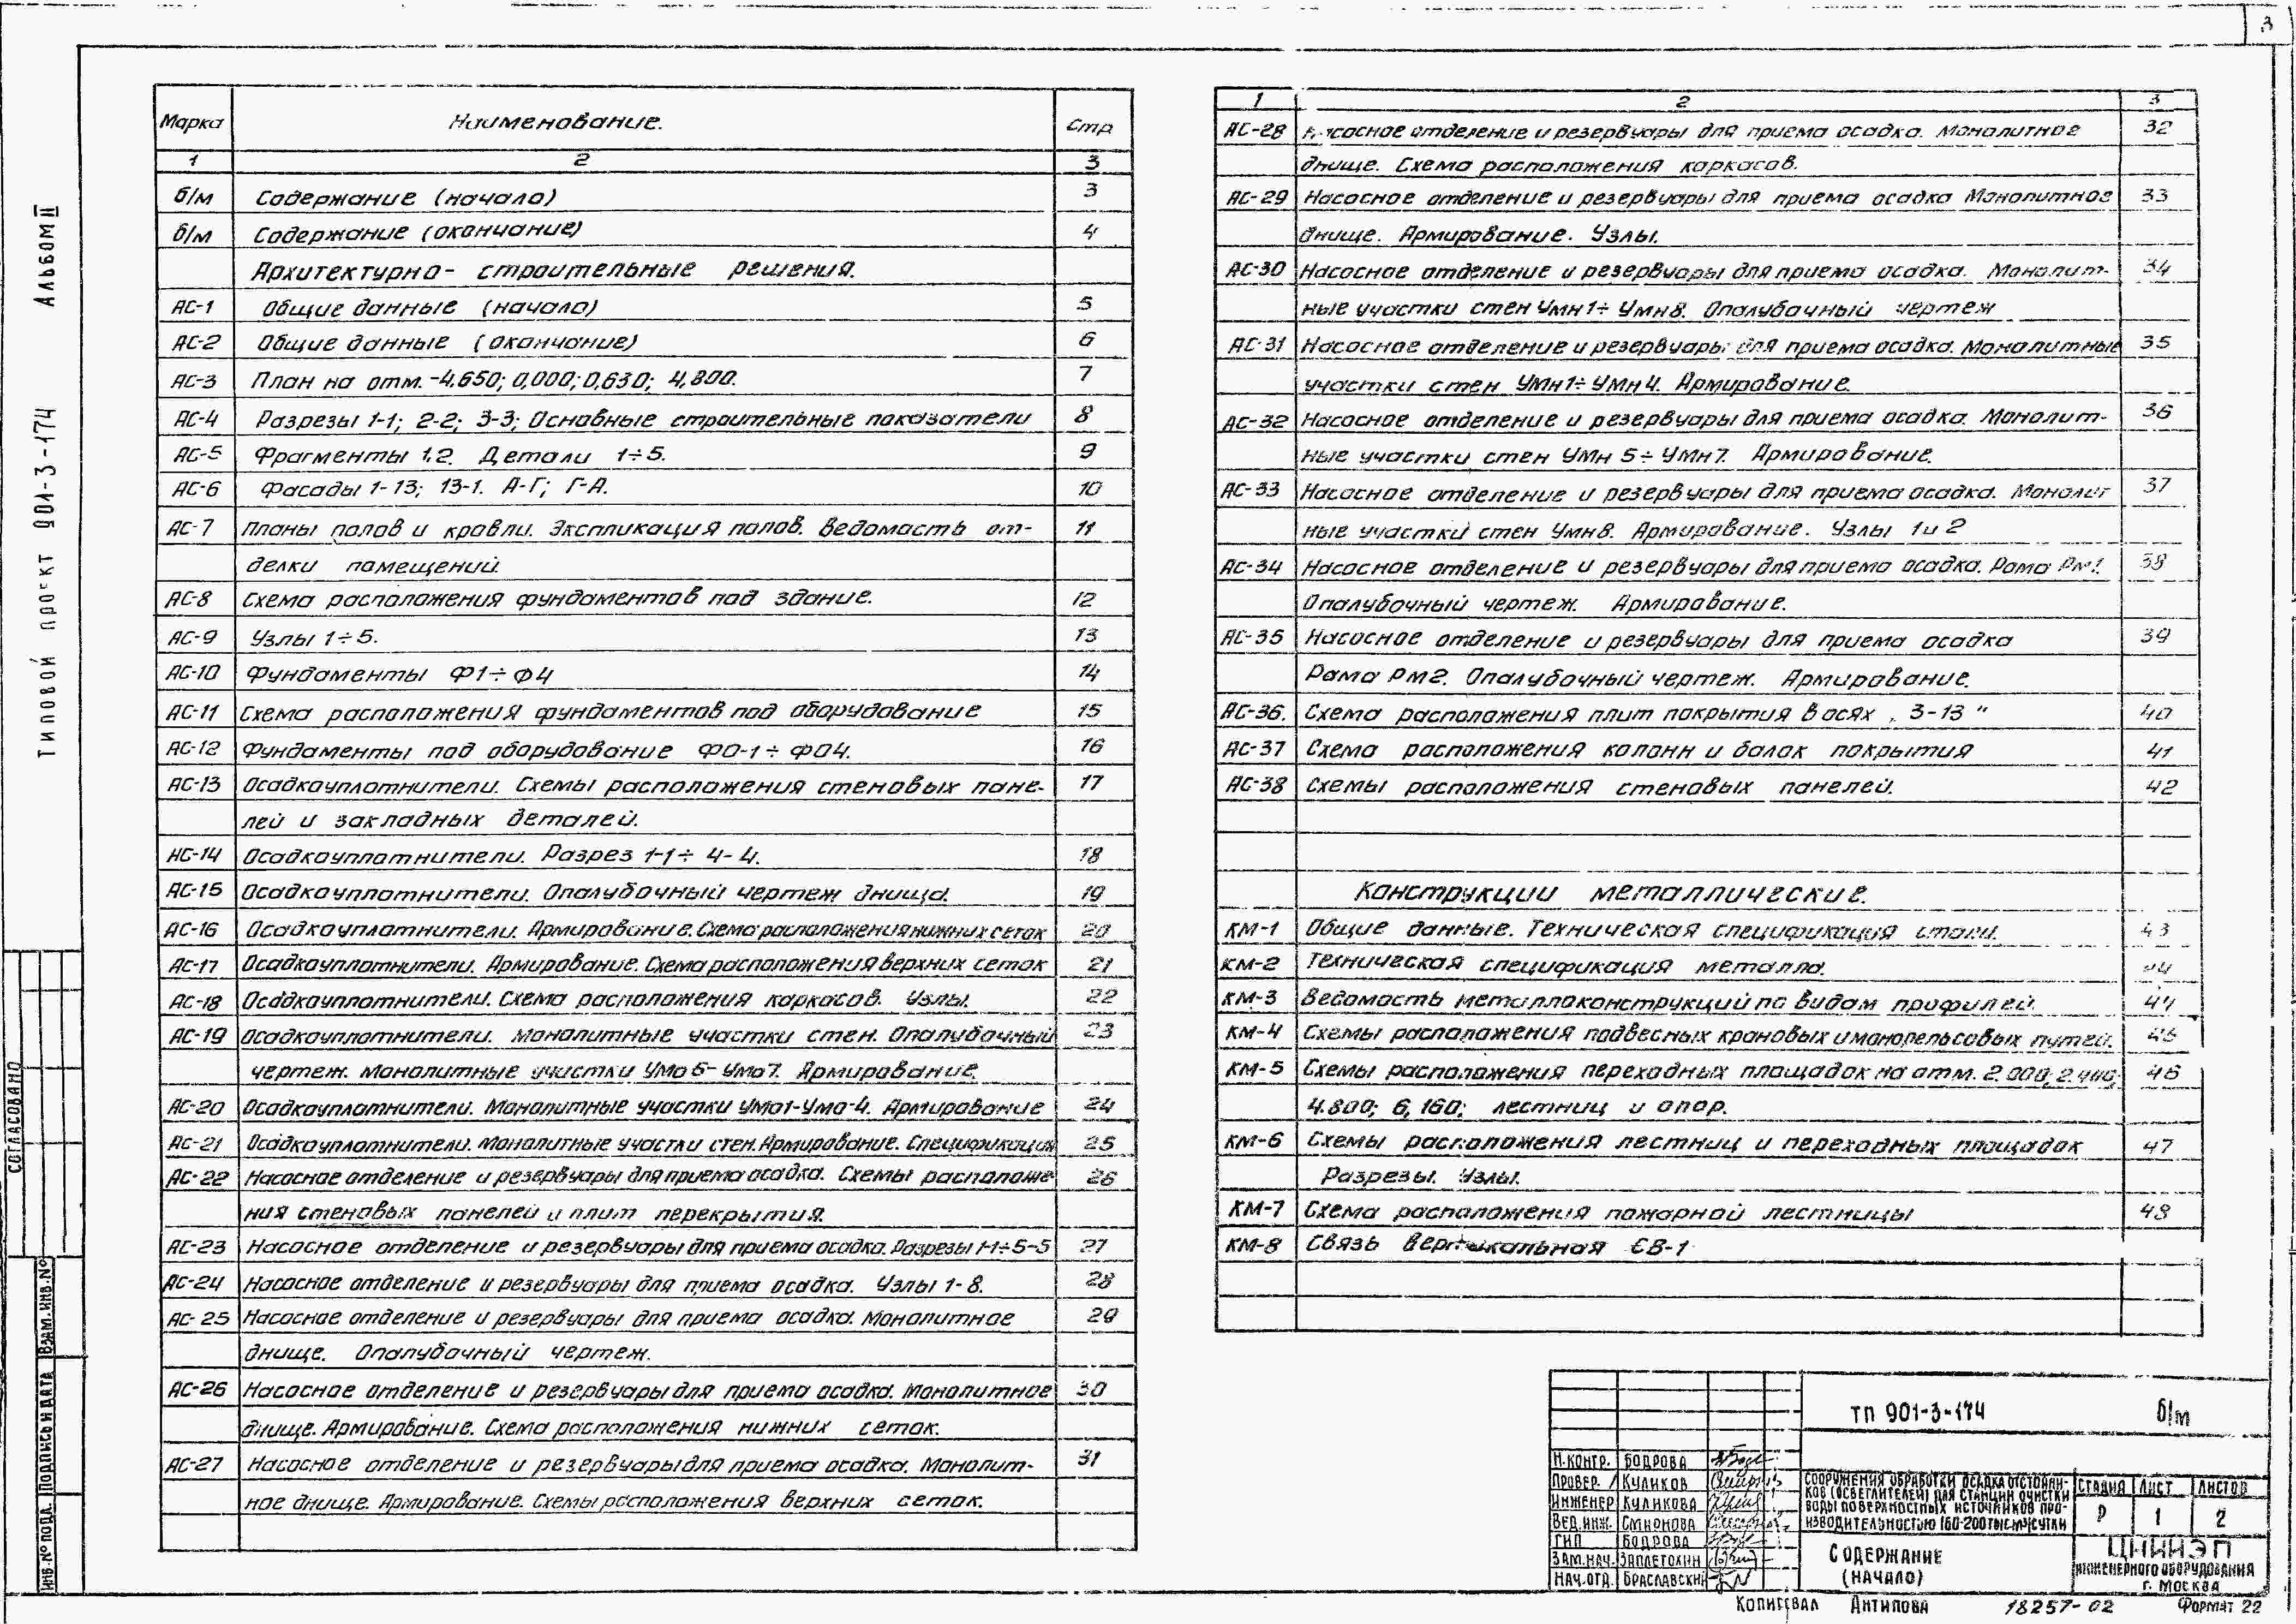 3
Альбом II
Типовой проект 901-3-174
СОГЛАСОВАНО
ИНВ.№ ПОДЛ. ПОДПИСЬ И ДАТА ВЗАМ.ИНВ.№
Марка Наименование. Стр
1 2 3
б/м Содержание (начало) 3
б/м Содержание (окончание) 4
Архитектурно- строительные решения.
АС-1 Общие данные (начало) 5
АС-2 Общие данные (окончание) 6
АС-3 План на отм. -4,650; 0,000; 0,630; 4,800. 7
АС-4 Разрезы 1-1; 2-2; 3-3; Основные строительные показатели 8
АС-5 Фрагменты 1,2. Детали 1÷5. 9
АС-6 Фасады 1-13; 13-1. А-Г; Г-А. 10
АС-7 Планы полов и кровли. Экспликация полов. Ведомость от- 11
делки помещений.
АС-8 Схема расположения фундаментов под здание. 12
АС-9 Узлы 1÷5. 13
АС-10 Фундаменты Ф1÷Ф4 14
АС-11 Схема расположения фундаментов под оборудование 15
АС-12 Фундаменты под оборудование ФО-1÷ФО4. 16
АС-13 Осадкоуплотнители. Схемы расположения стеновых пане- 17
лей и закладных деталей.
АС-14 Осадкоуплотнители. Разрез 1-1÷ 4-4. 18
АС-15 Осадкоуплотнители. Опалубочный чертеж днища. 19
АС-16 Осадкоуплотнители. Армирование. Схема расположения нижних сеток 20
АС-17 Осадкоуплотнители. Армирование. Схема расположения верхних сеток 21
АС-18 Осадкоуплотнители. Схема расположения каркасов. Узлы. 22
АС-19 Осадкоуплотнители. Монолитные участки стен. Опалубочный 23
чертеж. Монолитные участки Умо6-Умо7. Армирование.
АС-20 Осадкоуплотнители. Монолитные участки Умо1-Умо-4. Армирование 24
АС-21 Осадкоуплотнители. Монолитные участки стен. Армирование. Спецификация 25
АС-22 Насосное отделение и резервуары для приема осадка. Схемы расположе 26
ния стеновых панелей и плит перекрытия.
АС-23 Насосное отделение и резервуары для приема осадка. Разрезы 1-1÷5-5 27
АС-24 Насосное отделение и резервуары для приема осадка. Узлы 1-8. 28
АС-25 Насосное отделение и резервуары для приема осадка. Монолитное 29
днище. Опалубочный чертеж.
АС-26 Насосное отделение и резервуары для приема осадка. Монолитное 30
днище. Армирование. Схема расположения нижних сеток.
АС-27 Насосное отделение и резервуары для приема осадка. Монолит- 31
ное днище. Армирование. Схемы расположения верхних сеток.
1 2 3
АС-28 Насосное отделение и резервуары для приема осадка. Монолитное 32
днище. Схема расположения каркасов.
АС-29 Насосное отделение и резервуары для приема осадка Монолитное 33
днище. Армирование. Узлы.
АС-30 Насосное отделение и резервуары для приема осадка. Монолит- 34
ные участки стен Умн1÷ Умн8. Опалубочный чертеж
АС-31 Насосное отделение и резервуары для приема осадка. Монолитные 35
участки стен Умн1÷Умн4. Армирование.
АС-32 Насосное отделение и резервуары для приема осадка. Монолит- 36
ные участки стен Умн 5÷Умн7. Армирование.
АС-33 Насосное отделение и резервуары для приема осадка. Монолит 37
ные участки стен Умн8. Армирование. Узлы 1 и 2
АС-34 Насосное отделение и резервуары для приема осадка. Рама Рм1. 38
Опалубочный чертеж. Армирование.
АС-35 Насосное отделение и резервуары для приема осадка 39
Рама Рм2. Опалубочный чертеж. Армирование.
АС-36. Схема расположения плит покрытия в осях „ 3-13 " 40
АС-37 Схема расположения колонн и балок покрытия 41
АС-38 Схемы расположения стеновых панелей. 42
Конструкции металлические.
КМ-1 Общие данные. Техническая спецификация стали. 43
КМ-2 Техническая спецификация металла. 44
КМ-3 Ведомость металлоконструкций по видам профилей. 44
КМ-4 Схемы расположения подвесных крановых и монорельсовых путей. 45
КМ-5 Схемы расположения переходных площадок на отм. 2.000; 2.400; 46
4.800; 6,160; лестниц и опор.
КМ-6 Схемы расположения лестниц и переходных площадок 47
Разрезы. Узлы.
КМ-7 Схема расположения пожарной лестницы 48
КМ-8 Связь вертикальная СВ-1
ТП 901-3-174 б/м
Н.КОНТР. БОДРОВА
ПРОВЕР. КУЛИКОВ
ИНЖЕНЕР КУЛИКОВА
ВЕД.ИНЖ. СМИРНОВА
ГИП БОДРОВА
ЗАМ.НАЧ. ЗАПЛЕТОХИН
НАЧ.ОТД. БРАСЛАВСКИЙ
СООРУЖЕНИЯ ОБРАБОТКИ ОСАДКА ОТСТОЙНИ-
КОВ (ОСВЕТЛИТЕЛЕЙ) ДЛЯ СТАНЦИИ ОЧИСТКИ
ВОДЫ ПОВЕРХНОСТНЫХ ИСТОЧНИКОВ ПРО-
ИЗВОДИТЕЛЬНОСТЬЮ 160-200 ТЫС.М³/СУТКИ
СТАДИЯ ЛИСТ ЛИСТОВ
Р 1 2
СОДЕРЖАНИЕ
(НАЧАЛО)
ЦНИИЭП
ИНЖЕНЕРНОГО ОБОРУДОВАНИЯ
г. МОСКВА
Копировал Антипова 18257-02 Формат 22